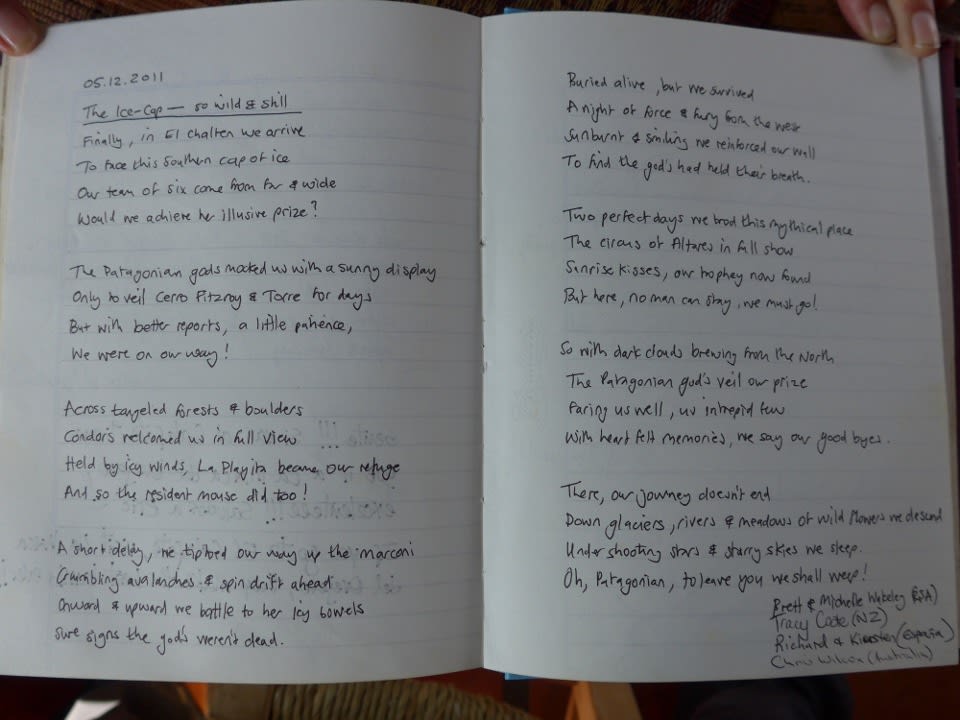 05.12.2011
The Ice-Cap — so wild & still
Finally, in El chalten we arrive
To face this Southern cap of ice
Our team of six come from far & wide
Would we achieve her illusive prize?
The Patagonian gods mocked us with a sunny display
Only to veil Cerro Fitzroy & Torre for days
But with better reports, a little patience,
We were on our way!
Across tangeled forests & boulders
Condors welcomed us in full view
Held by icy winds, La Playita became our refuge
And so the resident mouse did too!
A short delay, we tiptoed our way up the marconi
Crumbling avalanches & spin drift ahead
Onward & upward we battle to her icy bowels
Sure signs the god's weren't dead.
Buried alive, but we survived
A night of force & fury from the west
Sunburnt & smiling we reinforced our wall
To find the god's had held their breath.
Two perfect days we trod this mythical place
The circus of Altares in full show
Sunrise kisses, our trophey now found
But here, no man can stay, we must go!
So with dark clouds brewing from the North
The Patagonian god's veil our prize
Faring us well, us intrepid few
With heart felt memories, we say our good byes.
There, our journey doesn't end
Down glaciers, rivers & meadows of wild flowers we descend
Under shooting stars & starry skies we sleep.
Oh, Patagonian, to leave you we shall weep!
Brett & Michelle (RSA)
Tracy (NZ)
Richard & Kiersten (España)
Chris Wilcox (Australia)